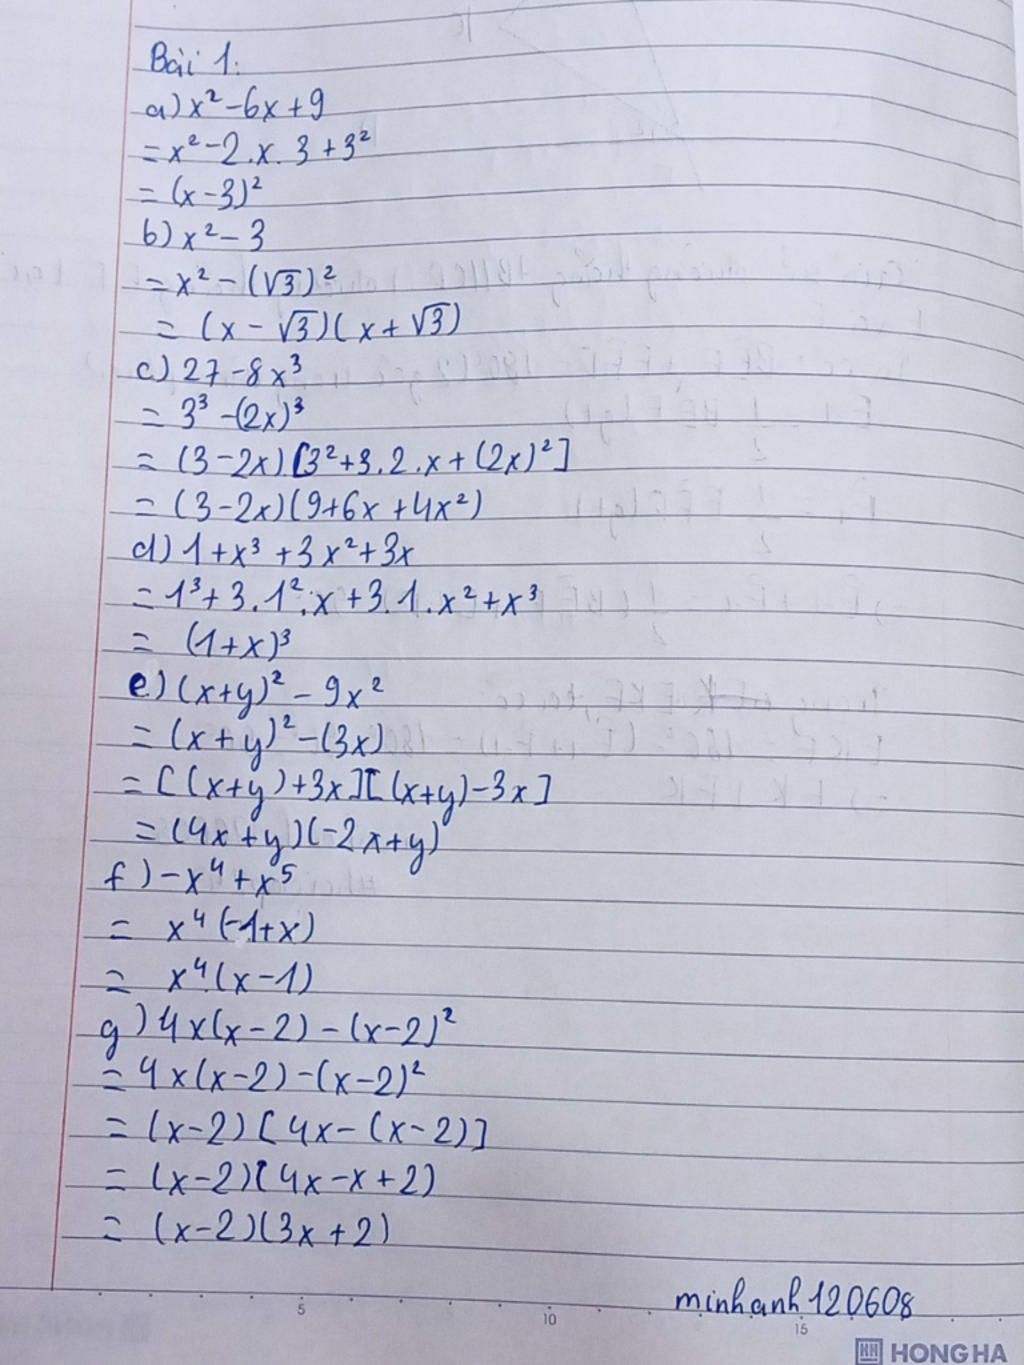 Bài 1:
a) x² - 6x + 9
= x² - 2.x.3 + 3²
= (x - 3)²
b) x² - 3
= x² - (√3)²
= (x - √3)(x + √3)
c) 27 - 8x³
= 3³ - (2x)³
= (3 - 2x)[3² + 3.2.x + (2x)²]
= (3 - 2x)(9 + 6x + 4x²)
d) 1 + x³ + 3x² + 3x
= 1³ + 3.1².x + 3.1.x² + x³
= (1 + x)³
e) (x + y)² - 9x²
= (x + y)² - (3x)
= [(x + y) + 3x][(x + y) - 3x]
= (4x + y)(-2x + y)
f) -x⁴ + x⁵
= x⁴(-1 + x)
= x⁴(x - 1)
g) 4x(x - 2) - (x - 2)²
= 4x(x - 2) - (x - 2)²
= (x - 2)[4x - (x - 2)]
= (x - 2)(4x - x + 2)
= (x - 2)(3x + 2)
minhanh120608
5 10 15
HONG HA